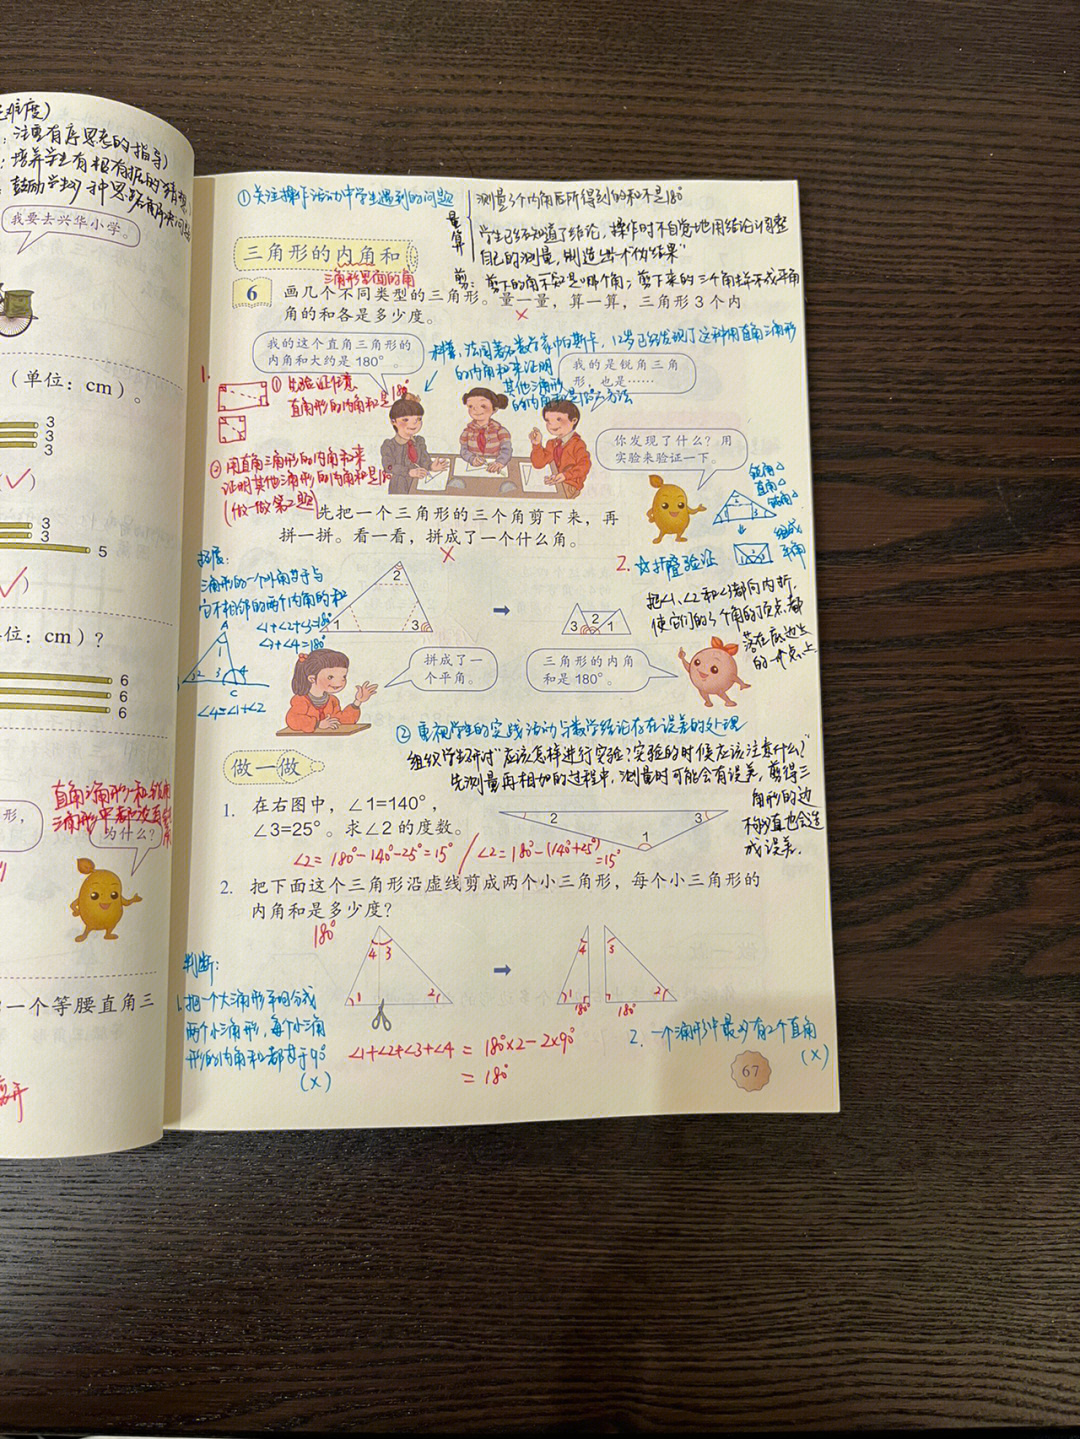 无难度）
：注重有序思考的指导）
：培养学生有根有据的猜想
我要去兴华小学。
（单位：cm）。
3
3
3
(√)
3
3
5
位：cm）？
6
6
6
形，
为什么？
一个等腰直角三
①关注操作活动中学生遇到的问题
量
算
测量3个内角后所得到的和不是180°
学生已经知道了结论，操作时不自觉地用结论调整
自己的测量，制造出个“伪结果”
剪：剪下的角不知是哪个角；剪下来的三个角拼不成平角
三角形的内角和
三角形里面的角
6 画几个不同类型的三角形。量一量，算一算，三角形 3 个内
角的和各是多少度。
×
我的这个直角三角形的
内角和大约是 180°。
科普：法国著名数学家帕斯卡，12岁已经发现了这种用直角三角形
的内角和来证明
其他三角形
的内角和是180°的方法
我的是锐角三角
形，也是……
1.
①先验证任意
直角形的内角和是180°
②用直角三角形的内角和来
证明其他三角形的内角和是180°
(做一做第2题)
你发现了什么？用
实验来验证一下。
锐角△
直角△
钝角△
组成
平角
先把一个三角形的三个角剪下来，再
拼一拼。看一看，拼成了一个什么角。
×
2.
折叠验证
把∠1、∠2和∠3都向内折，
使它们的3个角的顶点都
落在底边上
的一点上
拓展：
三角形的一个外角等于与
它不相邻的两个内角的和
∠1+∠2+∠3=180°
∠3+∠4=180°
A
1
2 3 4
C
∠4=∠1+∠2
2
1 3
3 2 1
拼成了一
个平角。
三角形的内角
和是 180°。
②重视学生的实践活动与数学结论存在误差的处理
组织学生研讨“应该怎样进行实验？实验的时候应该注意什么？”
先测量再相加的过程中，测量时可能会有误差，剪得三
角形的边
不够直也会造
成误差.
做一做
1. 在右图中，∠1=140°，
∠3=25°。求∠2 的度数。
2 3
1
∠2= 180°-140°-25°=15° / ∠2=180°-(140°+25°)
=15°
2. 把下面这个三角形沿虚线剪成两个小三角形，每个小三角形的
内角和是多少度？
180°
4 3
1 2
4 3
1 2
180° 180°
判断：
1.把一个大三角形平均分成
两个小三角形，每个小三角
形的内角和都等于90°
(×)
∠1+∠2+∠3+∠4 = 180°×2-2×90°
= 180°
2. 一个三角形中最少有2个直角
(×)
67